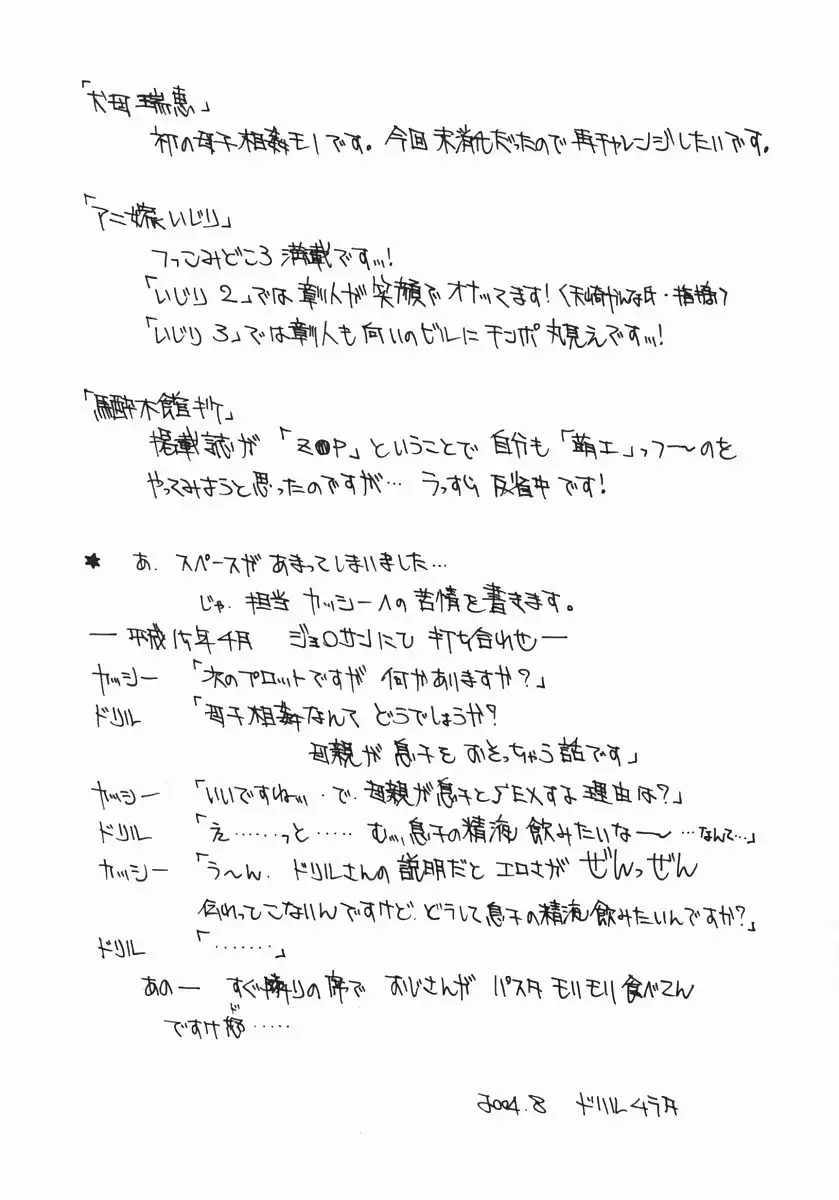 「犬母 瑞恵」
初の母子相姦モノです。今回 未消化だったので 再チャレンジしたいです。
「アニ嫁いじり」
つっこみどころ 満載ですッ!
「いじり 2」では 彰人が 笑顔で オナッてます!
「いじり 3」では彰人も 向いのビルに チンポ 丸見えですッ!
「馬酔木館
掲載誌が 「Z●P」ということで 自分も 「萌エ」っつ〜のを
やってみようと思ったのですが… うっすら 反省中です!
★ あ. スペースが あまってしまいました…
じゃ. 担当 カッシーへの 苦情を 書きます。
― 平成16年4月 ジョ○サンにて 打ち合わせ ―
カッシー 「次のプロットですが 何かありますか?」
ドリル 「母子相姦なんて どうでしょうか?
母親が 息子を おそっちゃう話です」
カッシー 「いいですねッ. で. 母親が息子とSEXする理由は?」
ドリル 「え……っと…… むッ, 息子の精液 飲みたいな〜 …なんて…」
カッシー 「う〜ん. ドリルさんの 説明だと エロさが ぜんっぜん
伝わってこないんですけど. どうして息子の精液飲みたいんですか?」
ドリル 「‥‥‥‥」
あのー すぐ隣りの 席で おじさんが パスタ モリモリ食べてん
ですけど……
2004.8 ドリルムラタ